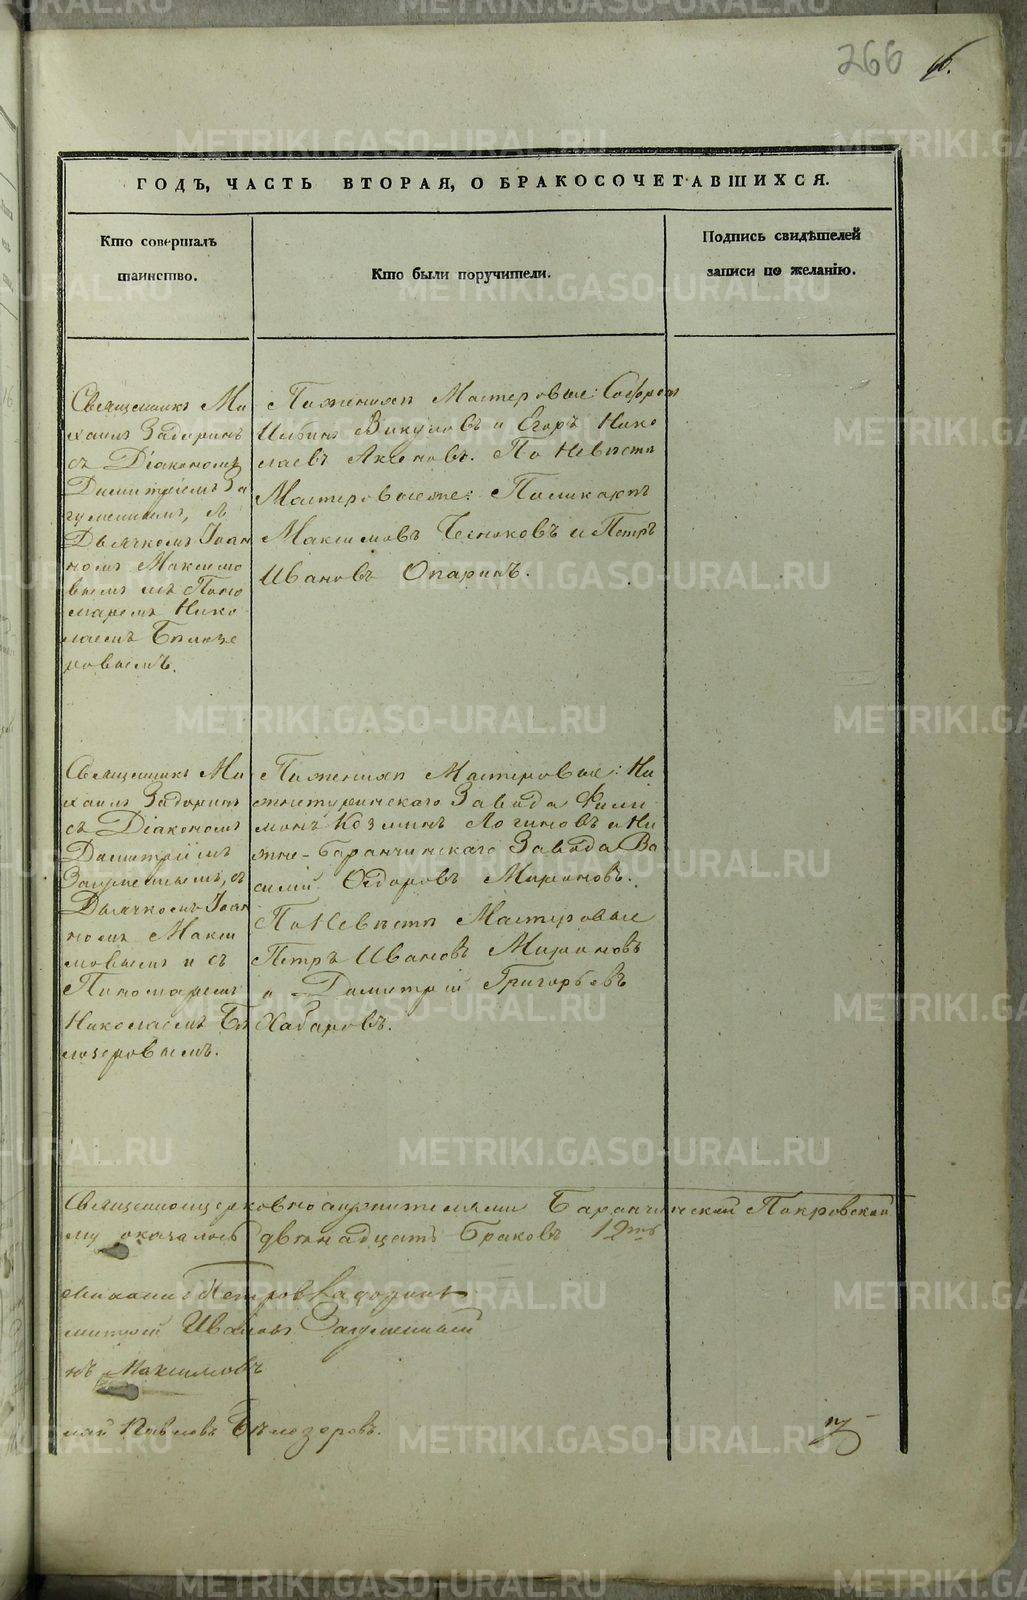 266
ГОДЪ, ЧАСТЬ ВТОРАЯ, О БРАКОСОЧЕТАВШИХСЯ.
Кто совершалъ
таинство.
Кто были поручители.
Подпись свидѣтелей
записи по желанію.
Священникъ Ми
хаилъ Задоринъ
съ Діакономъ
Димитріемъ За
гуменнымъ,
Дьячкомъ Іоан
номъ Максимо
вымъ Поно
маремъ Нико
лаемъ Бѣлозе
ровымъ.
По женихѣ Мастеровые: Софрон
Викуловъ и Егоръ Нико
лаевъ Аксеновъ. По Невѣстѣ
Мастеровыеже: Поликарпъ
Максимовъ и Петръ
Ивановъ Опаринъ.
Священникъ Ми
хаилъ Задоринъ
съ Діакономъ
Димитріемъ
Загуменнымъ, съ
Дьячкомъ Іоан
номъ Макси
мовымъ и съ
Пономаремъ
Николаемъ Бѣ
лозеровымъ.
По женихѣ Мастеровые: Ни
жнетуринскаго Завода Фили
монъ Козминъ Логиновъ и Ни
жне-Баранчинскаго Завода Ва
силій Ѳедоровъ Мироновъ.
По Невѣстѣ Мастеровые
Петръ Ивановъ Мироновъ
и Димитрій Григорьевъ
Хабаровъ.
Священноцерковнослужителями Баранчинской Покровской
му оказалось двѣнадцать браковъ 12ть
Михаилъ Петровъ Задоринъ
митрій Ивановъ Загуменный
нъ Максимовъ
лай Павловъ Бѣлозеровъ.
METRIKI.GASO-URAL.RU